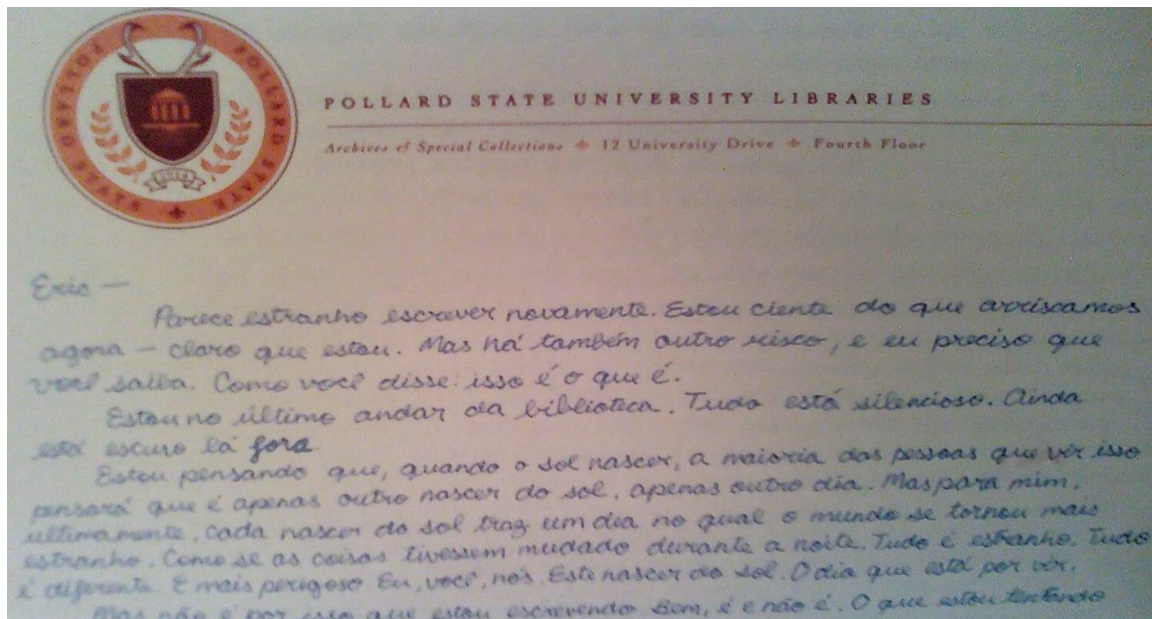 POLLARD STATE
POLLARD STATE
POLLARD STATE UNIVERSITY LIBRARIES
Archives & Special Collections 12 University Drive Fourth Floor
Eric —
Parece estranho escrever novamente. Estou ciente do que arriscamos
agora — claro que estou. Mas há também outro risco, e eu preciso que
você saiba. Como você disse: isso é o que é.
Estou no último andar da biblioteca. Tudo está silencioso. Ainda
está escuro lá fora
Estou pensando que, quando o sol nascer, a maioria das pessoas que vir isso
pensará que é apenas outro nascer do sol, apenas outro dia. Mas para mim,
ultimamente, cada nascer do sol traz um dia no qual o mundo se tornou mais
estranho. Como se as coisas tivessem mudado durante a noite. Tudo é estranho. Tudo
é diferente. E mais perigoso. Eu, você, nós. Este nascer do sol. O dia que está por vir.
Mas não é por isso que estou escrevendo. Bem, é e não é. O que estou tentando